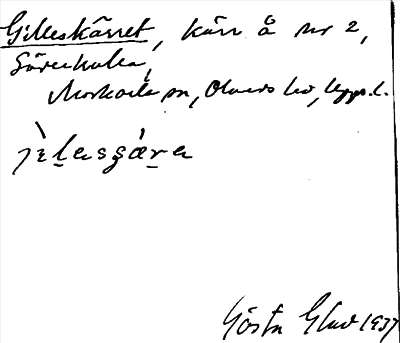 Gilleskärret, kärr å nr 2,
Görekulla,
Morkarla sn, Olands hd, Upps. l.
jìlasʂæ̀ra
Gösta Glad 1937